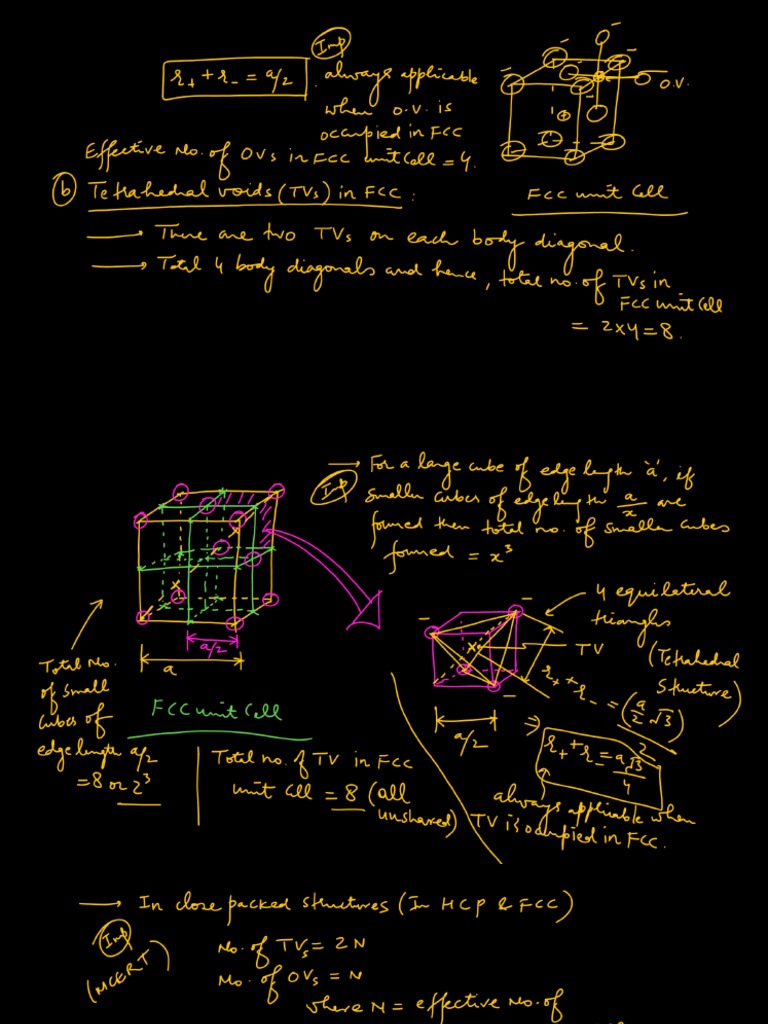 Imp
r₊ + r₋ = a/2 . always applicable
when O.V. is
occupied in FCC
O.V.
Effective No. of OVs in FCC unit Cell = 4.
FCC unit Cell
(b) Tetrahedral voids (TVs) in FCC :
→ There are two TVs on each body diagonal.
→ Total 4 body diagonals and hence, total no. of TVs in
FCC unit Cell
= 2x4 = 8.
→ For a large cube of edge length 'a', if
Imp
smaller cubes of edge length a/x are
formed then total no. of smaller cubes
formed = x³
a/2
a
FCC unit Cell
Total No.
of small
cubes of
edge length a/2
= 8 or 2³
Total no. of TV in FCC
unit Cell = 8 (all
unshared)
4 equilateral
triangles
(Tetrahedral
Structure)
TV
a/2
r₊ + r₋ = (a/2 √3)/2
⇒ r₊ + r₋ = a√3/4
always applicable when
TV is occupied in FCC.
→ In close packed structures (In HCP & FCC)
Imp
(NCERT)
No. of TVs = 2N
No. of OVs = N
where N = effective No. of